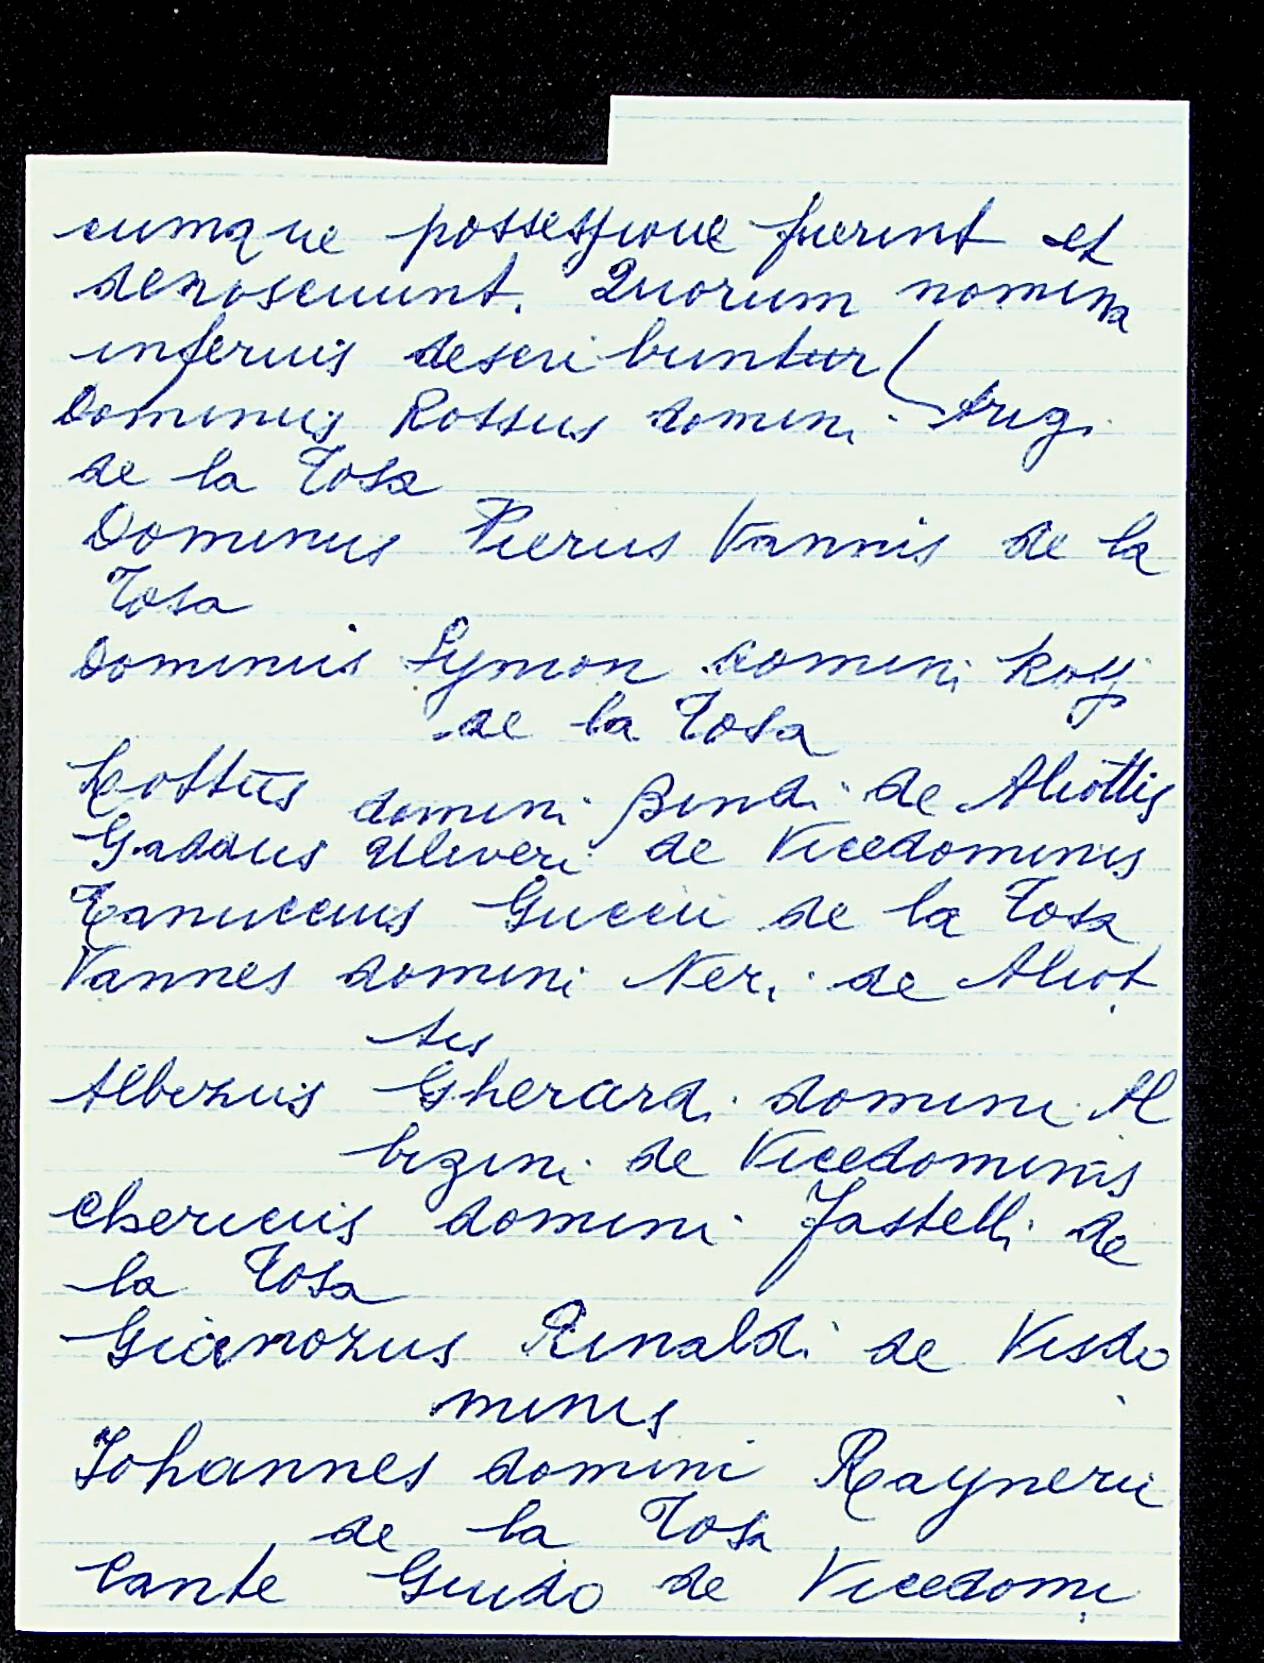 cumque possessione fuerint et
denoscuunt. Quorum nomina
inferius describuntur
Dominus Rossus domini Arigi
de la Tosa
Dominus Pierus Vannis de la
Tosa
Dominus Symon domini Rossi
de la Tosa
Lottus domini Bindi de Aliottis
Gaddus Uliveri de Vicedominis
Tanuccius Guccii de la Tosa
Vannes domini Neri de Aliot
tis
Albizus Gherardi domini Al
bizini de Vicedominis
Chericus domini Fastelli de
la Tosa
Gianozus Rinaldi de Visdo
minis
Iohannes domini Raynerii
de la Tosa
Cante Guido de Vicedomi